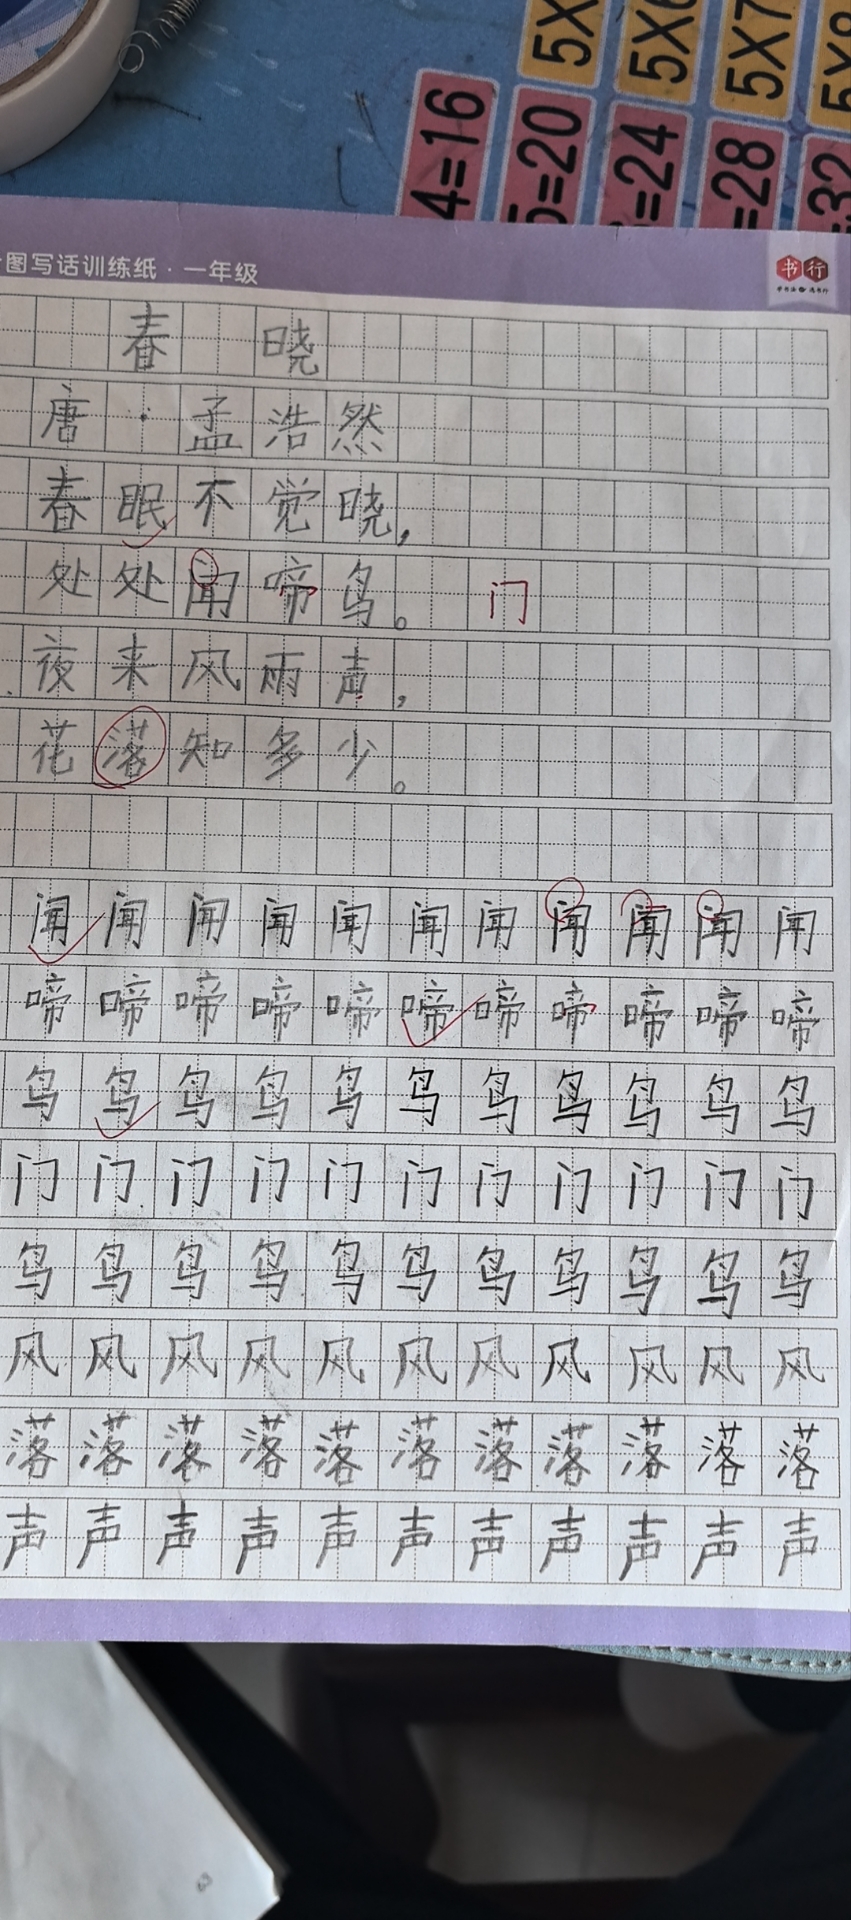 5X
5X6
5X7
5X8
4=16
5=20
=24
=28
=32
图写话训练纸·一年级
书行
春晓
唐·孟浩然
春眠不觉晓，
处处闻啼鸟。门
夜来风雨声，
花落知多少。
闻闻闻闻闻闻闻闻闻闻闻
啼啼啼啼啼啼啼啼啼啼啼
鸟鸟鸟鸟鸟鸟鸟鸟鸟鸟鸟
门门门门门门门门门门门
鸟鸟鸟鸟鸟鸟鸟鸟鸟鸟鸟
风风风风风风风风风风风
落落落落落落落落落落落
声声声声声声声声声声声